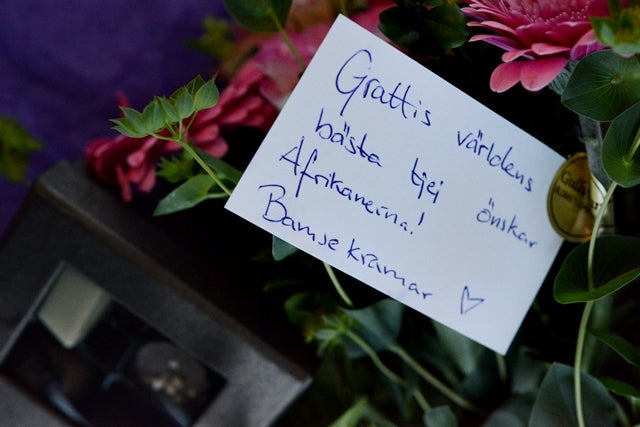 Grattis världens
bästa tjej önskar
Afrikanerna!
Bamse kramar ♡